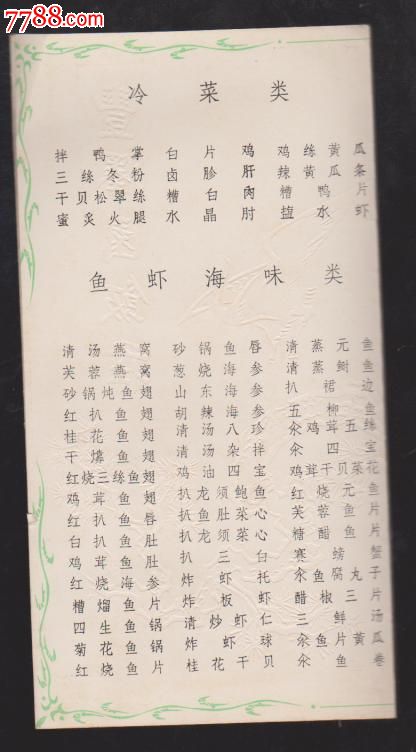 7788.com
冷菜类
拌鸭掌 白片鸡 鸡绦黄瓜
三绦冬粉 卤胗肝 辣黄瓜条
干贝松翠绦 糟白肉 糟鸭片
蜜炙火腿 水晶肘 盐水虾
鱼虾海味类
清汤燕窝 砂锅鱼唇 清蒸元鱼
芙蓉燕窝 葱烧海参 清蒸鲥鱼
砂锅炖鱼翅 山东海参 扒裙边
红扒鱼翅 胡辣海参 五柳鱼
桂花鱼翅 清汤八珍 汆鸡茸五绦
干㸆鱼翅 清汤杂拌 四宝
红烧三绦鱼翅 鸡油四宝 鸡茸干贝菜花
鸡茸鱼翅 扒龙须鲍鱼 红烧元鱼
红扒鱼唇 扒鱼肚菜心 芙蓉鱼片
白扒鱼肚 扒龙须菜心 糖醋鱼片
鸡茸鱼肚 扒三白 赛螃蟹
红烧海参 炸虾托 汆鱼腐丸子
糟熘鱼片 炸板虾 醋椒三片
四生鱼锅 清炒虾仁 汆鲜汤
菊花鱼锅 炸虾球 汆鱼片黄瓜
红烧鱼片 桂花干贝 鱼卷